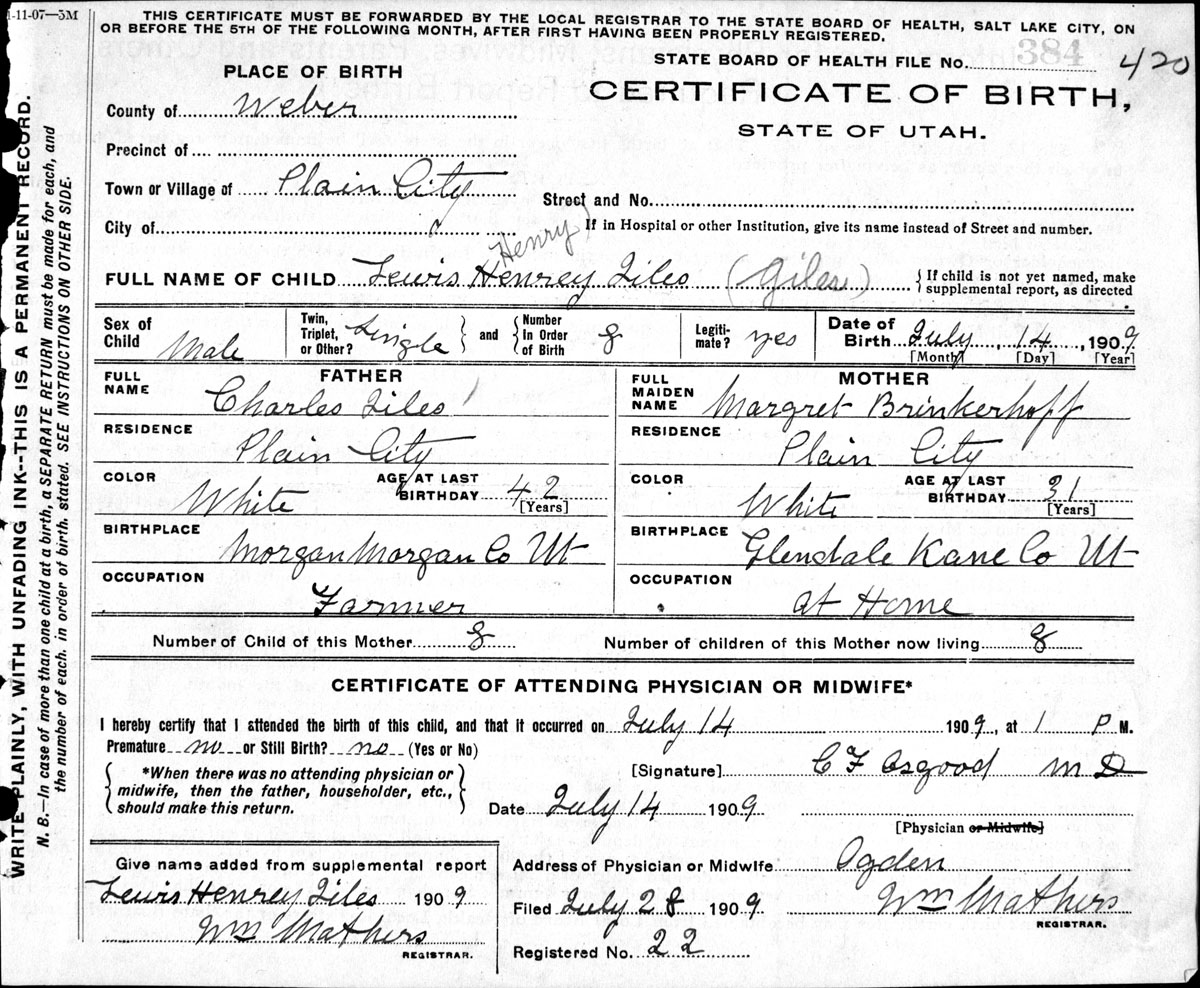 1-11-07—5M
THIS CERTIFICATE MUST BE FORWARDED BY THE LOCAL REGISTRAR TO THE STATE BOARD OF HEALTH, SALT LAKE CITY, ON
OR BEFORE THE 5TH OF THE FOLLOWING MONTH, AFTER FIRST HAVING BEEN PROPERLY REGISTERED.
STATE BOARD OF HEALTH FILE No. 384 420
PLACE OF BIRTH
CERTIFICATE OF BIRTH,
STATE OF UTAH.
County of Weber
Precinct of
Town or Village of Plain City
Street and No.
City of
If in Hospital or other Institution, give its name instead of Street and number.
Henry)
FULL NAME OF CHILD Lewis Henrey Jiles (Giles)
If child is not yet named, make
supplemental report, as directed
Sex of Child Male
Twin, Triplet, or Other? Single and Number In Order of Birth 8
Legitimate? yes
Date of Birth July, 14, 1909
[Month] [Day] [Year]
FATHER
FULL NAME Charles Jiles
RESIDENCE Plain City
COLOR White AGE AT LAST BIRTHDAY 42
[Years]
BIRTHPLACE Morgan Morgan Co Ut
OCCUPATION Farmer
MOTHER
FULL MAIDEN NAME Margret Brinkerhoff
RESIDENCE Plain City
COLOR White AGE AT LAST BIRTHDAY 31
[Years]
BIRTHPLACE Glendale Kane Co Ut
OCCUPATION at Home
Number of Child of this Mother 8 Number of children of this Mother now living 8
CERTIFICATE OF ATTENDING PHYSICIAN OR MIDWIFE*
I hereby certify that I attended the birth of this child, and that it occurred on July 14 1909, at 1 P M.
Premature no or Still Birth? no (Yes or No)
*When there was no attending physician or
midwife, then the father, householder, etc.,
should make this return.
[Signature] C F Osgood M D
Date July 14 1909
[Physician or Midwife]
Give name added from supplemental report
Lewis Henrey Jiles 1909
Wm Mathers
REGISTRAR.
Address of Physician or Midwife Ogden
Filed July 28 1909 Wm Mathers
REGISTRAR.
Registered No. 22
WRITE PLAINLY, WITH UNFADING INK--THIS IS A PERMANENT RECORD.
N. B.—In case of more than one child at a birth, a SEPARATE RETURN must be made for each, and
the number of each, in order of birth, stated. SEE INSTRUCTIONS ON OTHER SIDE.